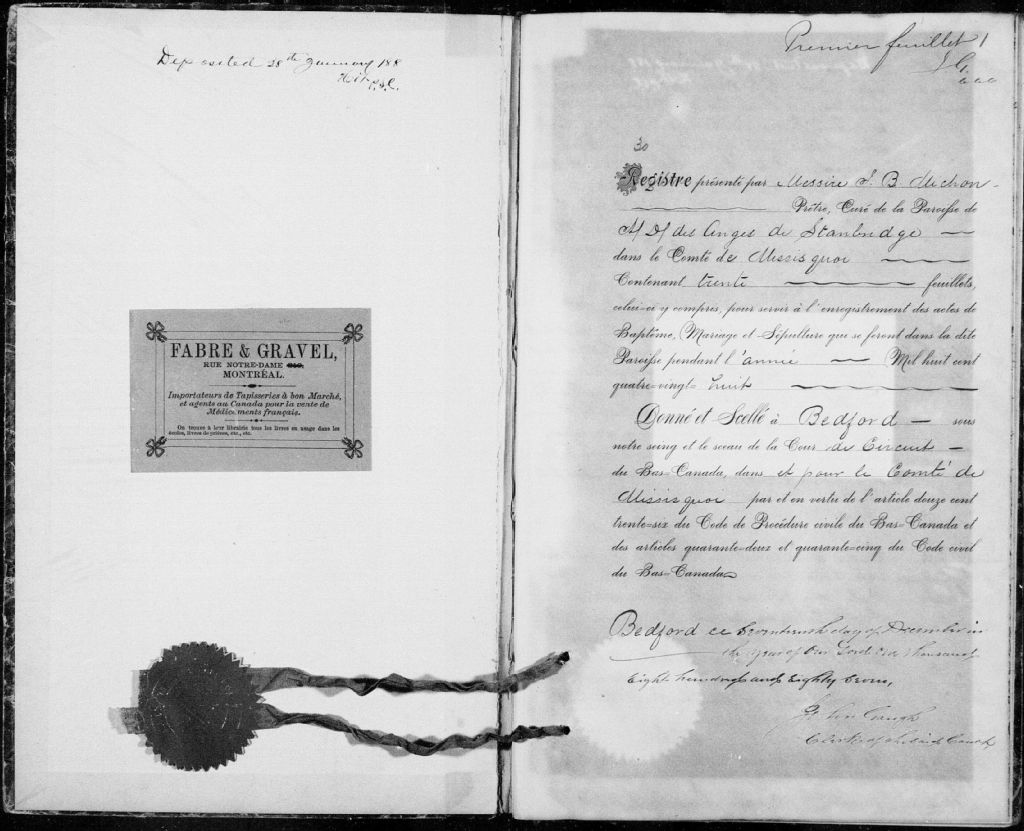 Deposited 28th January 188
FABRE & GRAVEL,
RUE NOTRE-DAME
MONTRÉAL.
Importateurs de Tapisseries à bon Marché,
et agents au Canada pour la vente de
Médicaments français.
On trouve à leur librairie tous les livres en usage dans les
écoles, livres de prières, etc., etc.
Premier feuillet 1
30
Registre présenté par Messire J. B. Michon
Prêtre, Curé de la Paroisse de
N D des Anges de Stanbridge
dans le Comté de Missisquoi
Contenant trente feuillets,
celui-ci y compris, pour servir à l'enregistrement des actes de
Baptême, Mariage et Sépulture qui se feront dans la dite
Paroisse pendant l'année Mil huit cent
quatre-vingt huit
Donné et Scellé à Bedford sous
notre seing et le sceau de la Cour de Circuit
du Bas-Canada, dans et pour le Comté de
Missisquoi par et en vertu de l'article douze cent
trente-six du Code de Procédure civile du Bas-Canada et
des articles quarante-deux et quarante-cinq du Code civil
du Bas-Canada
Bedford ce Seventeenth day of December in
the year of Our Lord One thousand
Eight hundred and Eighty Seven,
Clerk of the said Court